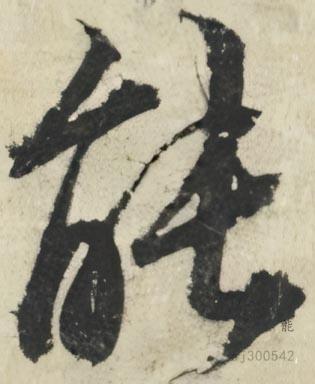 能
j300542